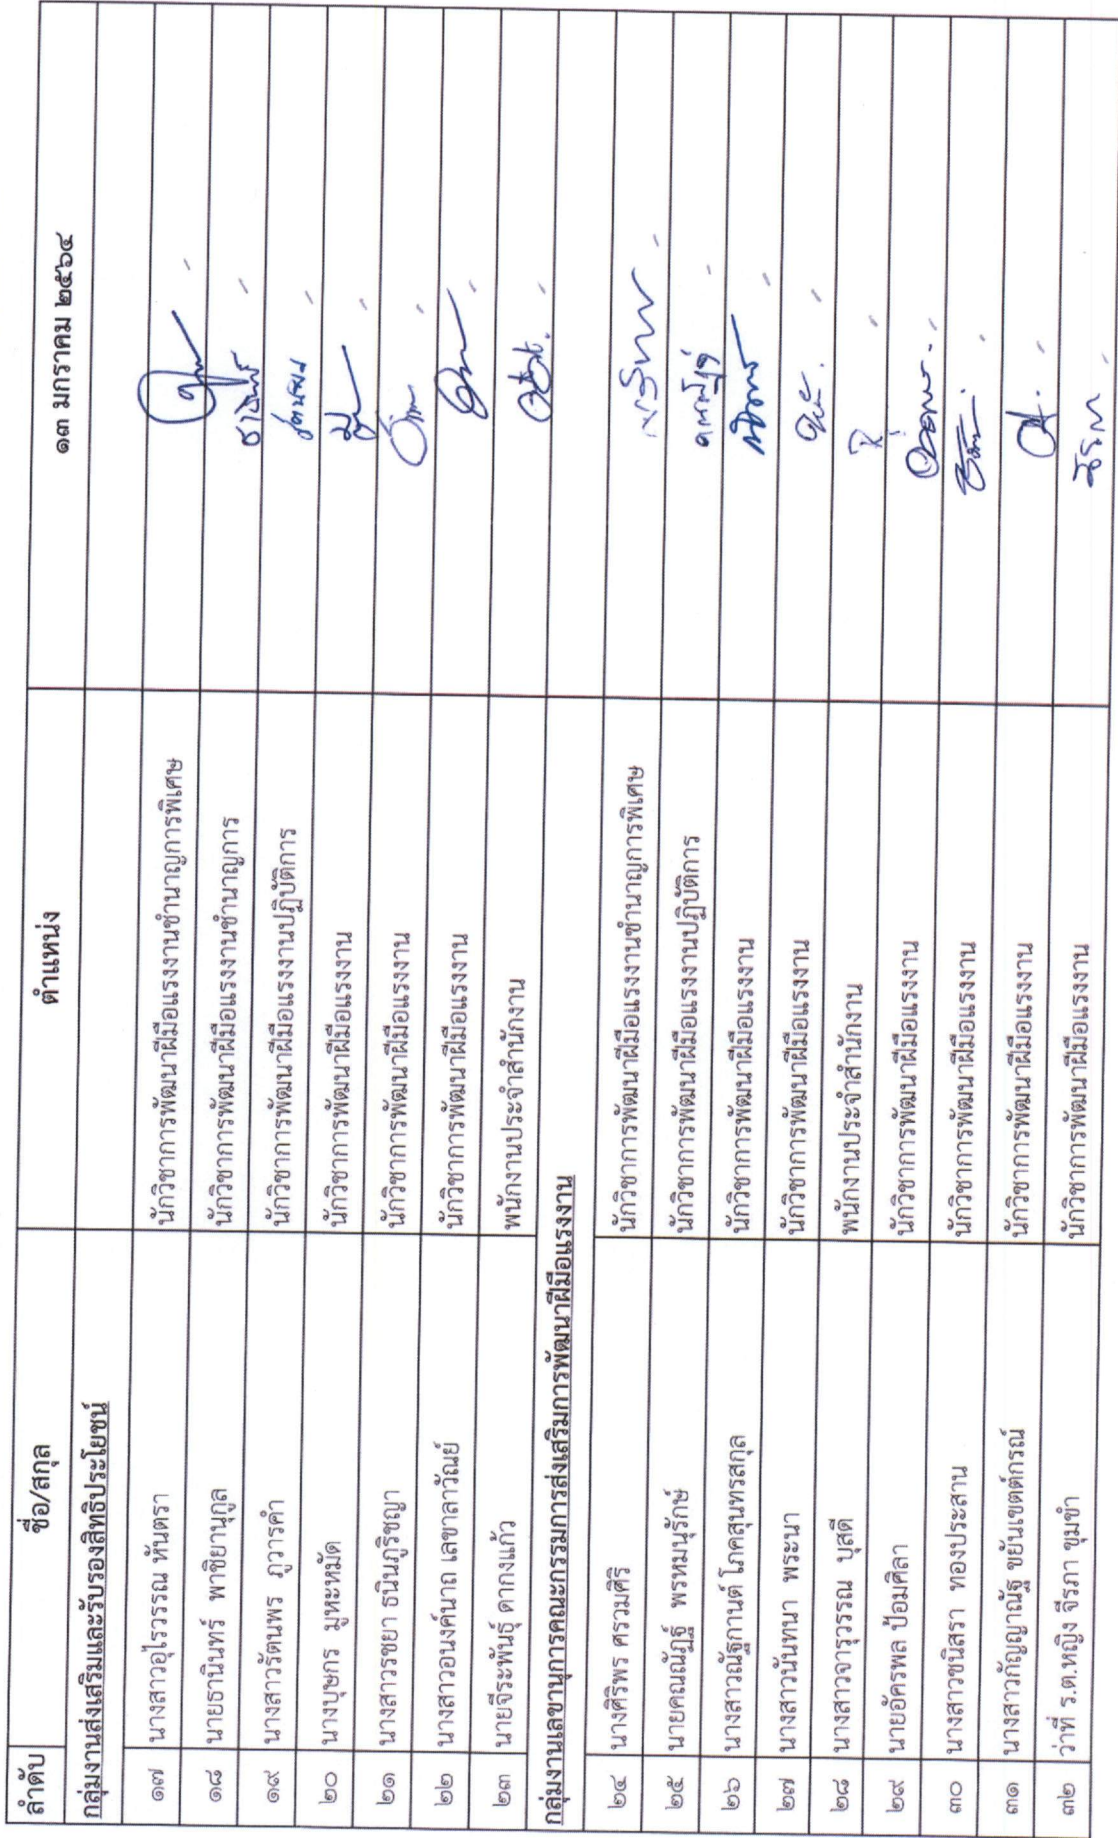 ลำดับ ชื่อ/สกุล ตำแหน่ง ๑๓ มกราคม ๒๕๖๔
กลุ่มงานส่งเสริมและรับรองสิทธิประโยชน์
๑๗ นางสาวอุไรวรรณ หันตรา นักวิชาการพัฒนาฝีมือแรงงานชำนาญการพิเศษ
๑๘ นายธานินทร์ พาชิยานุกูล นักวิชาการพัฒนาฝีมือแรงงานชำนาญการ
๑๙ นางสาวรัตนพร ภูวารคำ นักวิชาการพัฒนาฝีมือแรงงานปฏิบัติการ
๒๐ นางบุษกร มูหะหมัด นักวิชาการพัฒนาฝีมือแรงงาน
๒๑ นางสาวรชยา ธนินภูริชญา นักวิชาการพัฒนาฝีมือแรงงาน
๒๒ นางสาวอนงค์นาถ เลขาลาวัณย์ นักวิชาการพัฒนาฝีมือแรงงาน
๒๓ นายจีระพันธุ์ ดากงแก้ว พนักงานประจำสำนักงาน
กลุ่มงานเลขานุการคณะกรรมการส่งเสริมการพัฒนาฝีมือแรงงาน
๒๔ นางศิริพร ศรวมศิริ นักวิชาการพัฒนาฝีมือแรงงานชำนาญการพิเศษ
๒๕ นายคณณัฏฐ์ พรหมนุรักษ์ นักวิชาการพัฒนาฝีมือแรงงานปฏิบัติการ
๒๖ นางสาวณัฐกานต์ โภคสุนทรสกุล นักวิชาการพัฒนาฝีมือแรงงาน
๒๗ นางสาวนันทนา พระนา นักวิชาการพัฒนาฝีมือแรงงาน
๒๘ นางสาวจารุวรรณ บุสดี พนักงานประจำสำนักงาน
๒๙ นายอัครพล ป้อมศิลา นักวิชาการพัฒนาฝีมือแรงงาน
๓๐ นางสาวชนิสรา ทองประสาน นักวิชาการพัฒนาฝีมือแรงงาน
๓๑ นางสาวกัญญาณัฐ ขยันเขตต์กรณ์ นักวิชาการพัฒนาฝีมือแรงงาน
๓๒ ว่าที่ ร.ต.หญิง จีรภา ขุมขำ นักวิชาการพัฒนาฝีมือแรงงาน